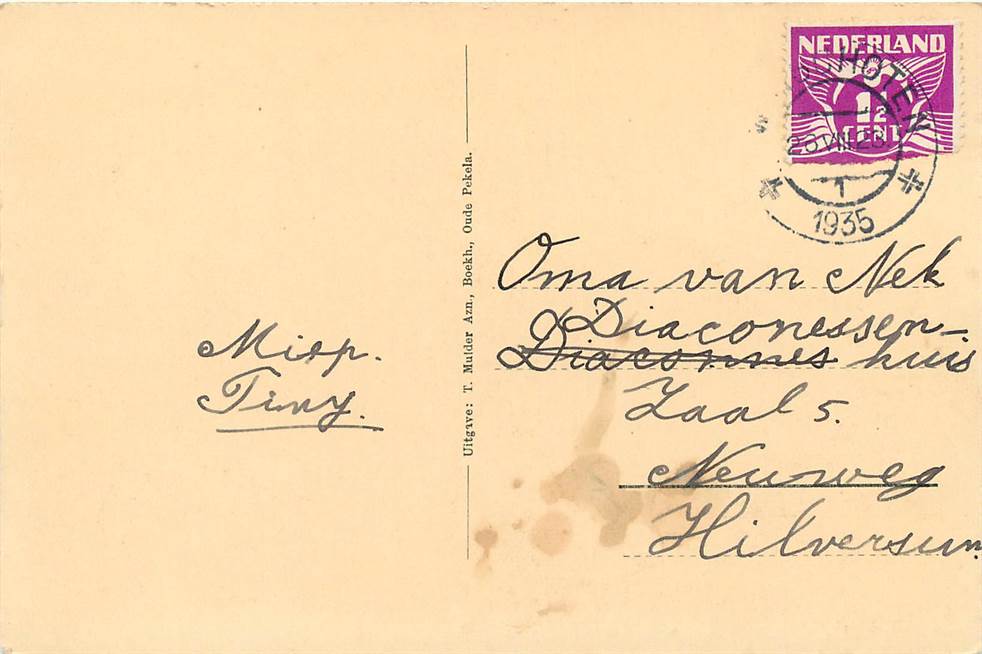 NEDERLAND
1½
CENT
HOTEN
1
1935
Uitgave: T. Mulder Azn., Boekh., Oude Pekela.
Oma van Nek
Diaconessen-
Diaconnes huis
Zaal 5.
Neuweg
Hilversum
Miep.
Tiny.